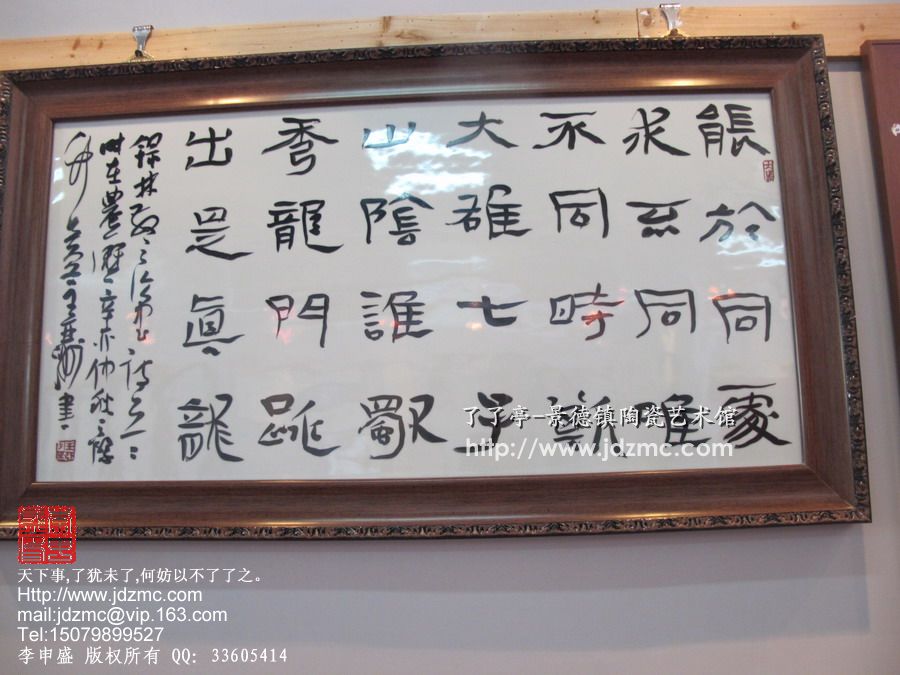 能於同處
求不同唯
不同時
大雄七
山陰誰
秀龍門跳
出是真龍
詩
時在農曆辛卯仲秋
書
了了亭-景德镇陶瓷艺术馆
http://www.jdzmc.com
天下事,了犹未了,何妨以不了了之。
Http://www.jdzmc.com
mail:jdzmc@vip.163.com
Tel:15079899527
李申盛 版权所有 QQ: 33605414